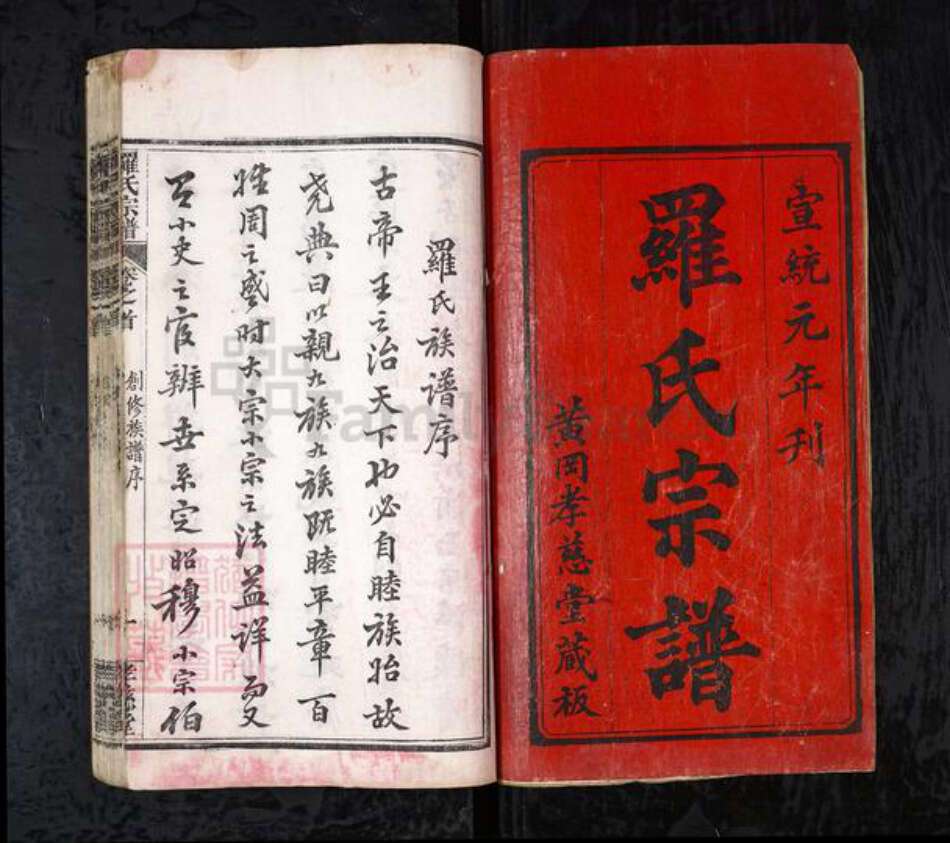 宣統元年刊
羅氏宗譜
黄岡孝慈堂藏板
羅氏族譜序
古帝王之治天下也必自睦族始故
尭典曰以親九族九族既睦平章百
姓周之盛时大宗小宗之法益详而又
小史之官辨世系定昭穆小宗伯
羅氏宗譜
卷之首
創修族譜序
一